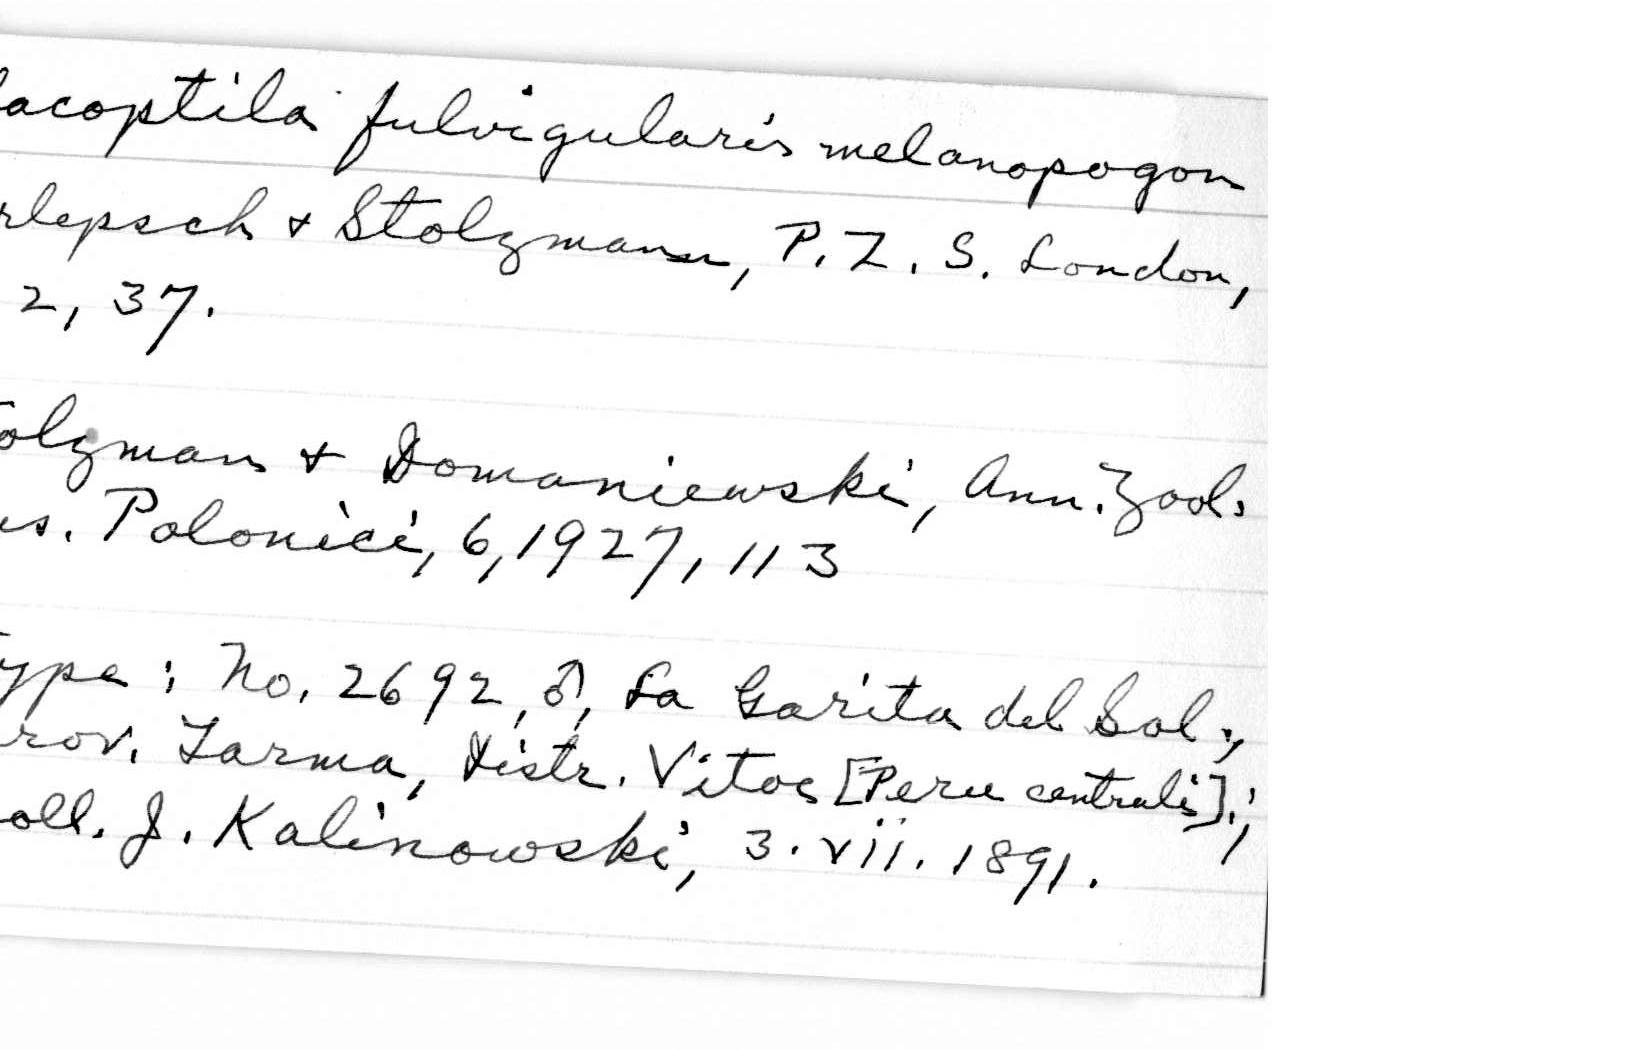 lacoptila fulvigularis melanopogon
rlepsch + Stolzmann, P. Z. S. London,
2, 37.
olzman + Domaniewski, Ann. Zool.
us. Polonici, 6, 1927, 113
ype: No. 2692, ♂, La Garita del Sol;
rov. Tarma, Distr. Vitoc [Peru centralis].;
oll. J. Kalinowski, 3. vii. 1891.